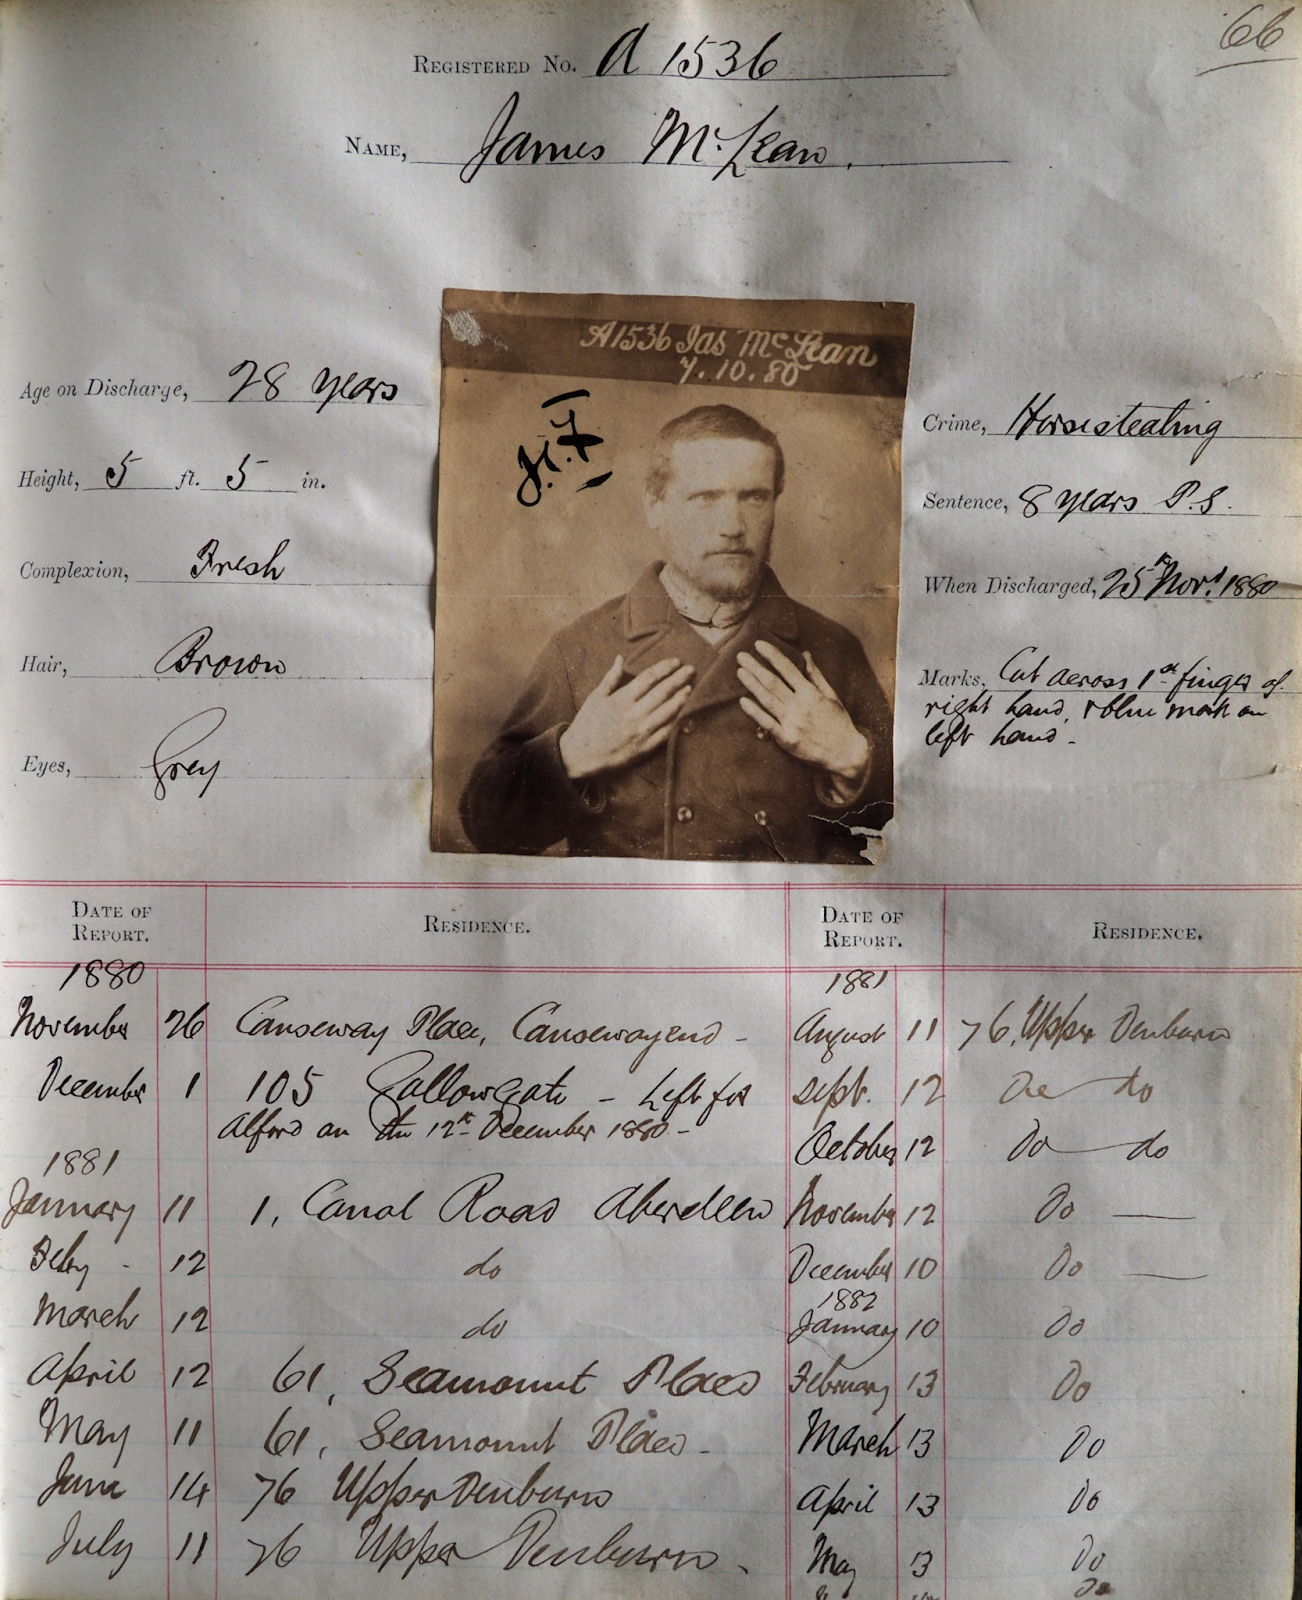 66
REGISTERED No. A 1536
NAME, James McLean.
A1536 Jas McLean
7.10.80
Age on Discharge, 28 years
Height, 5 ft. 5 in.
Complexion, Fresh
Hair, Brown
Eyes, Grey
Crime, Horsestealing
Sentence, 8 years P.S.
When Discharged, 25th Novr. 1880
Marks, Cut across 1st finger of
right hand, & blue mark on
left hand -
DATE OF REPORT. RESIDENCE.
1880
November 26 Causeway Place, Causewayend -
December 1 105 Gallowgate - Left for
Alford on the 12th December 1880 -
1881
January 11 1, Canal Road Aberdeen
Feby - 12 do
March 12 do
April 12 61, Seamount Place
May 11 61, Seamount Place -
June 14 76 Upper Denburn
July 11 76 Upper Denburn.
DATE OF REPORT. RESIDENCE.
1881
August 11 76, Upper Denburn
Sept. 12 Do do
October 12 Do do
November 12 Do
December 10 Do
1882
January 10 Do
February 13 Do
March 13 Do
April 13 Do
May 13 Do
Do